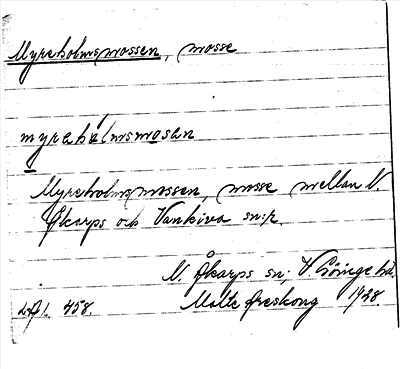 Myreholmsmossen, mosse
myrahålmsmosan
Myreholmsmossen, mosse mellan N.
Åkarps och Vankiva sn:r.
N. Åkarps sn; V Göinge hd.
L.A. 458. Malte Areskong 1928.